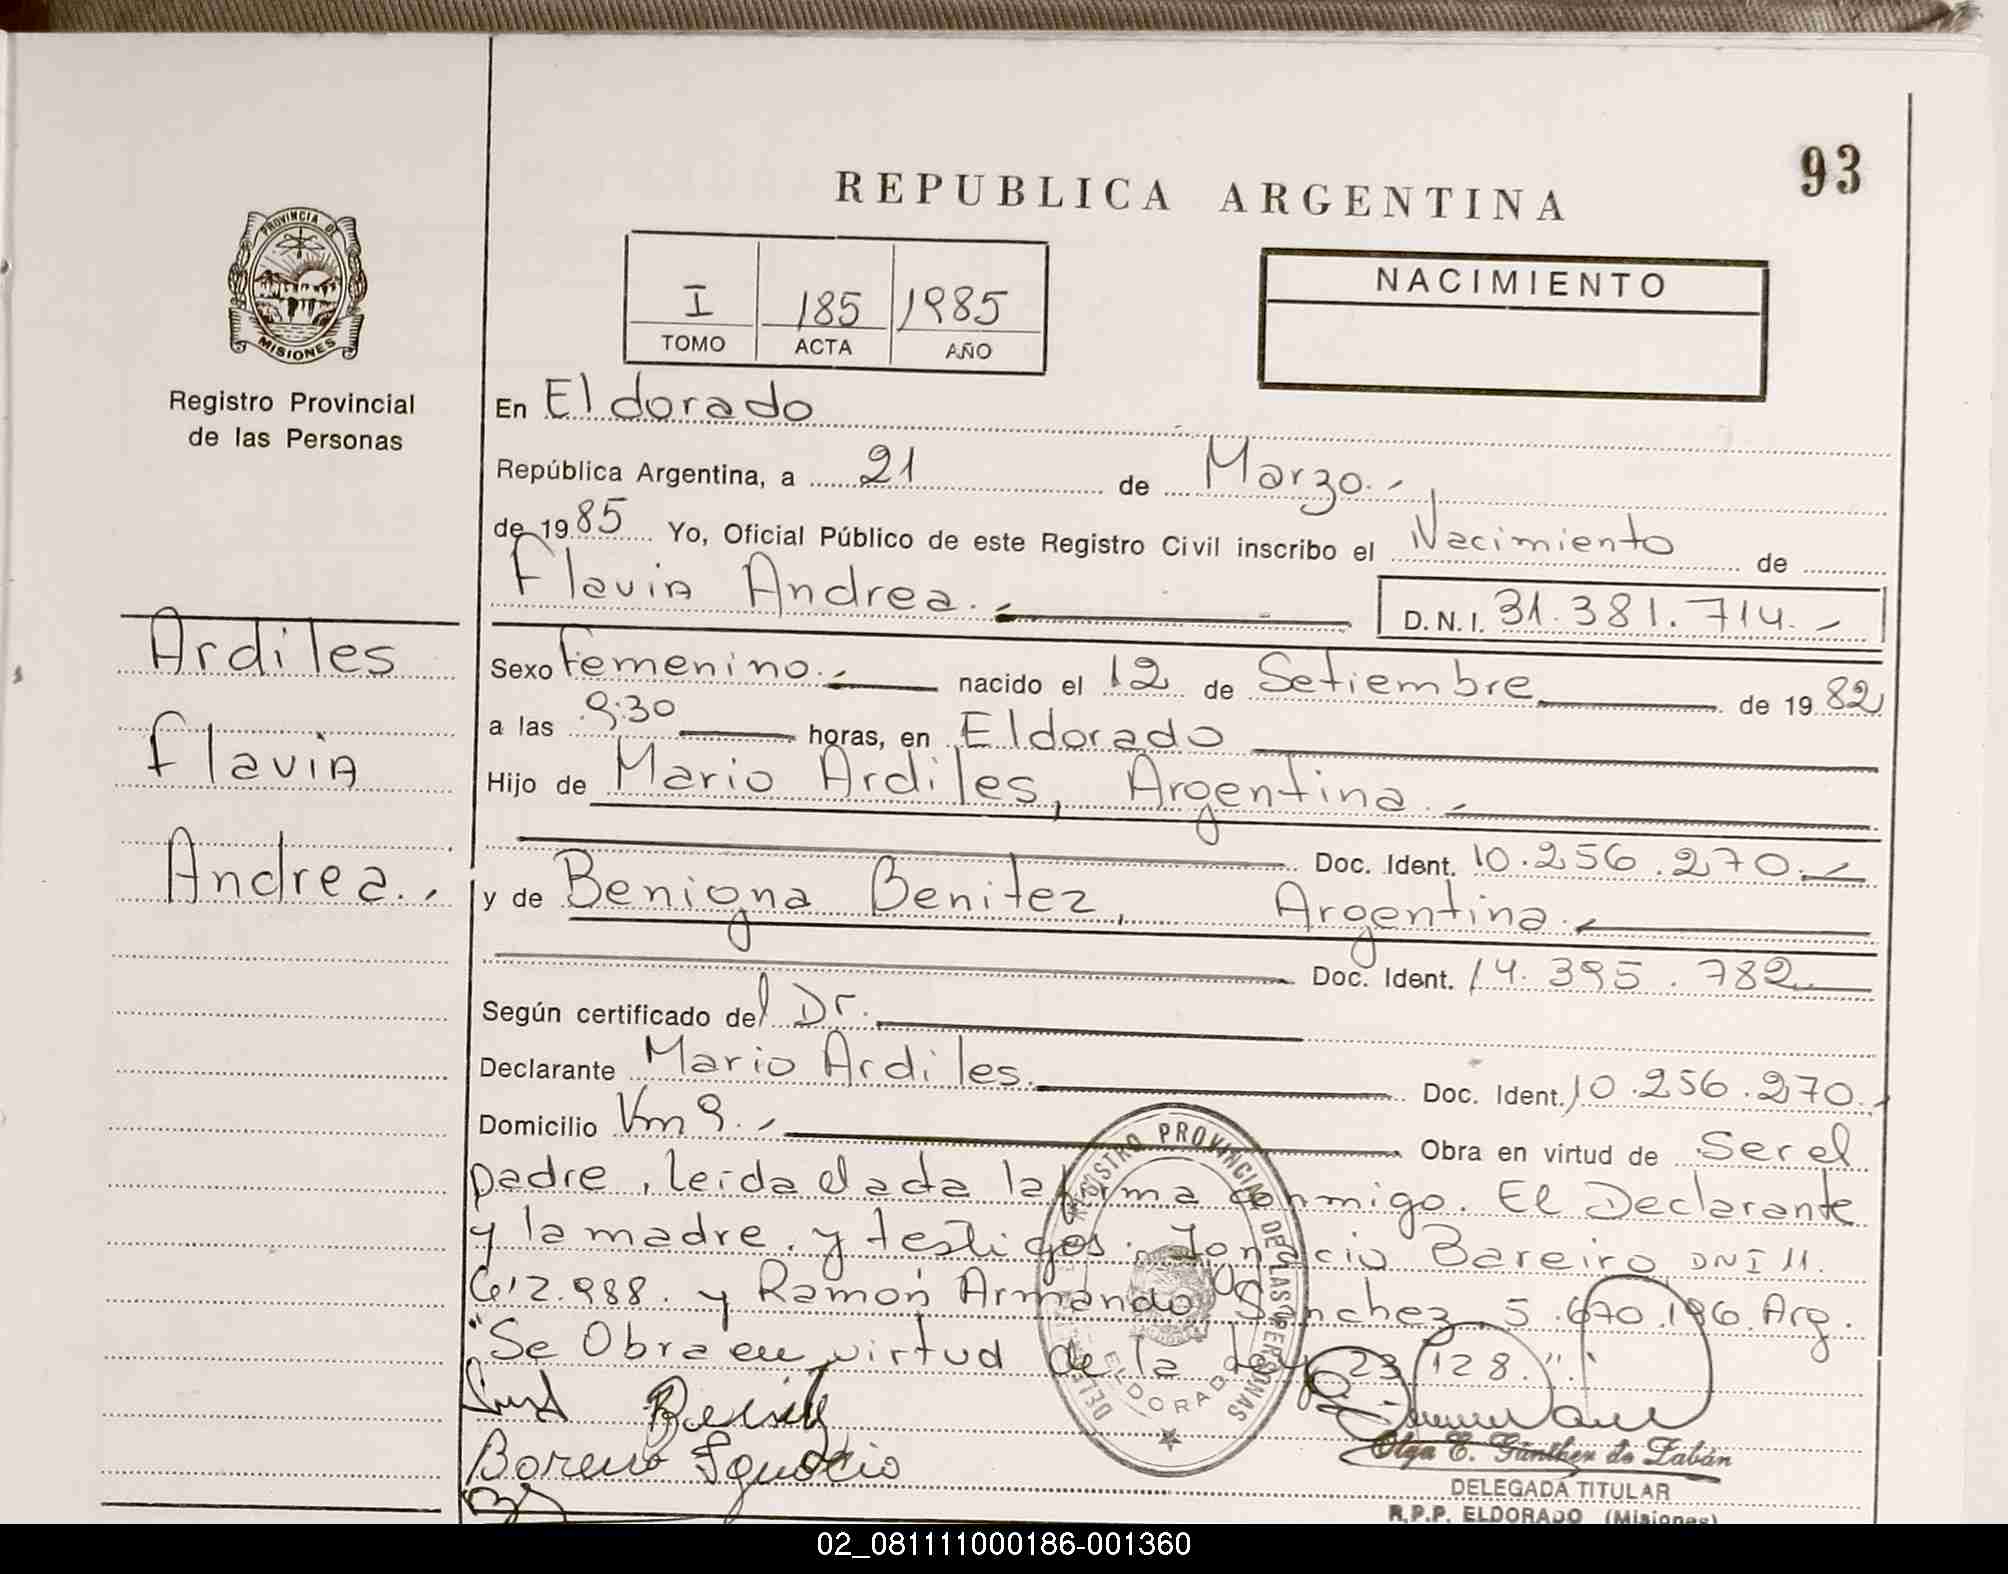 93
REPUBLICA ARGENTINA
PROVINCIA DE
MISIONES
Registro Provincial
de las Personas
I 185 1985
TOMO ACTA AÑO
NACIMIENTO
En Eldorado
República Argentina, a 21 de Marzo.-
de 1985 Yo, Oficial Público de este Registro Civil inscribo el Nacimiento de
Flavia Andrea.
D.N.I. 31.381.714.-
Ardiles
Flavia
Andrea.,
Sexo Femenino.- nacido el 12 de Setiembre de 1982
a las 9:30 horas, en Eldorado
Hijo de Mario Ardiles, Argentina.-
Doc. Ident. 10.256.270.-
y de Benigna Benitez, Argentina.-
Doc. Ident. 14.395.782.
Según certificado del Dr.
Declarante Mario Ardiles. Doc. Ident. 10.256.270.-
Domicilio Km 9.- Obra en virtud de Ser el
padre, leida el acta la firma conmigo. El Declarante
y la madre. y testigos. Ignacio Bareiro DNI 11.
612.988. y Ramón Armando Sanchez 5.670.196. Arg.
"Se Obra en virtud de la Ley 23128."
REGISTRO PROVINCIAL DE LAS PERSONAS
ELDORADO
Bareiro Ignacio
Olga E. Günther de Zabán
DELEGADA TITULAR
R.P.P. ELDORADO (Misiones)
02_081111000186-001360